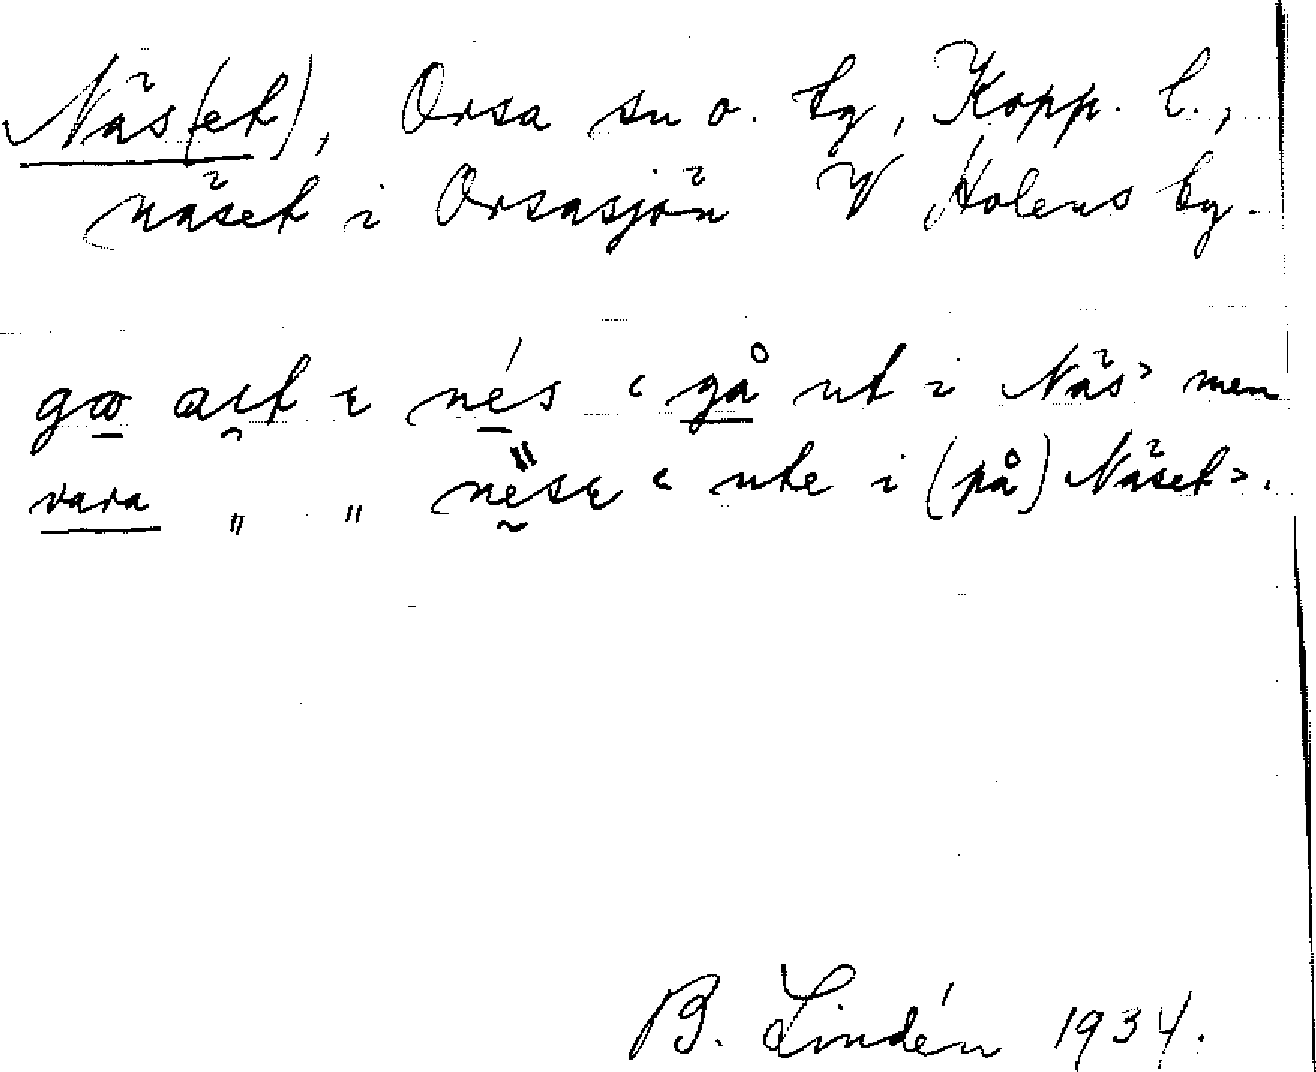 Näs(et), Orsa sn o. tg, Kopp. l.,
näset i Orsasjön V Holens by.
gå nés ‹ gå ut i Näs› men
vara " " ‹ ute i (på) Näset›.
B. Lindén 1934.